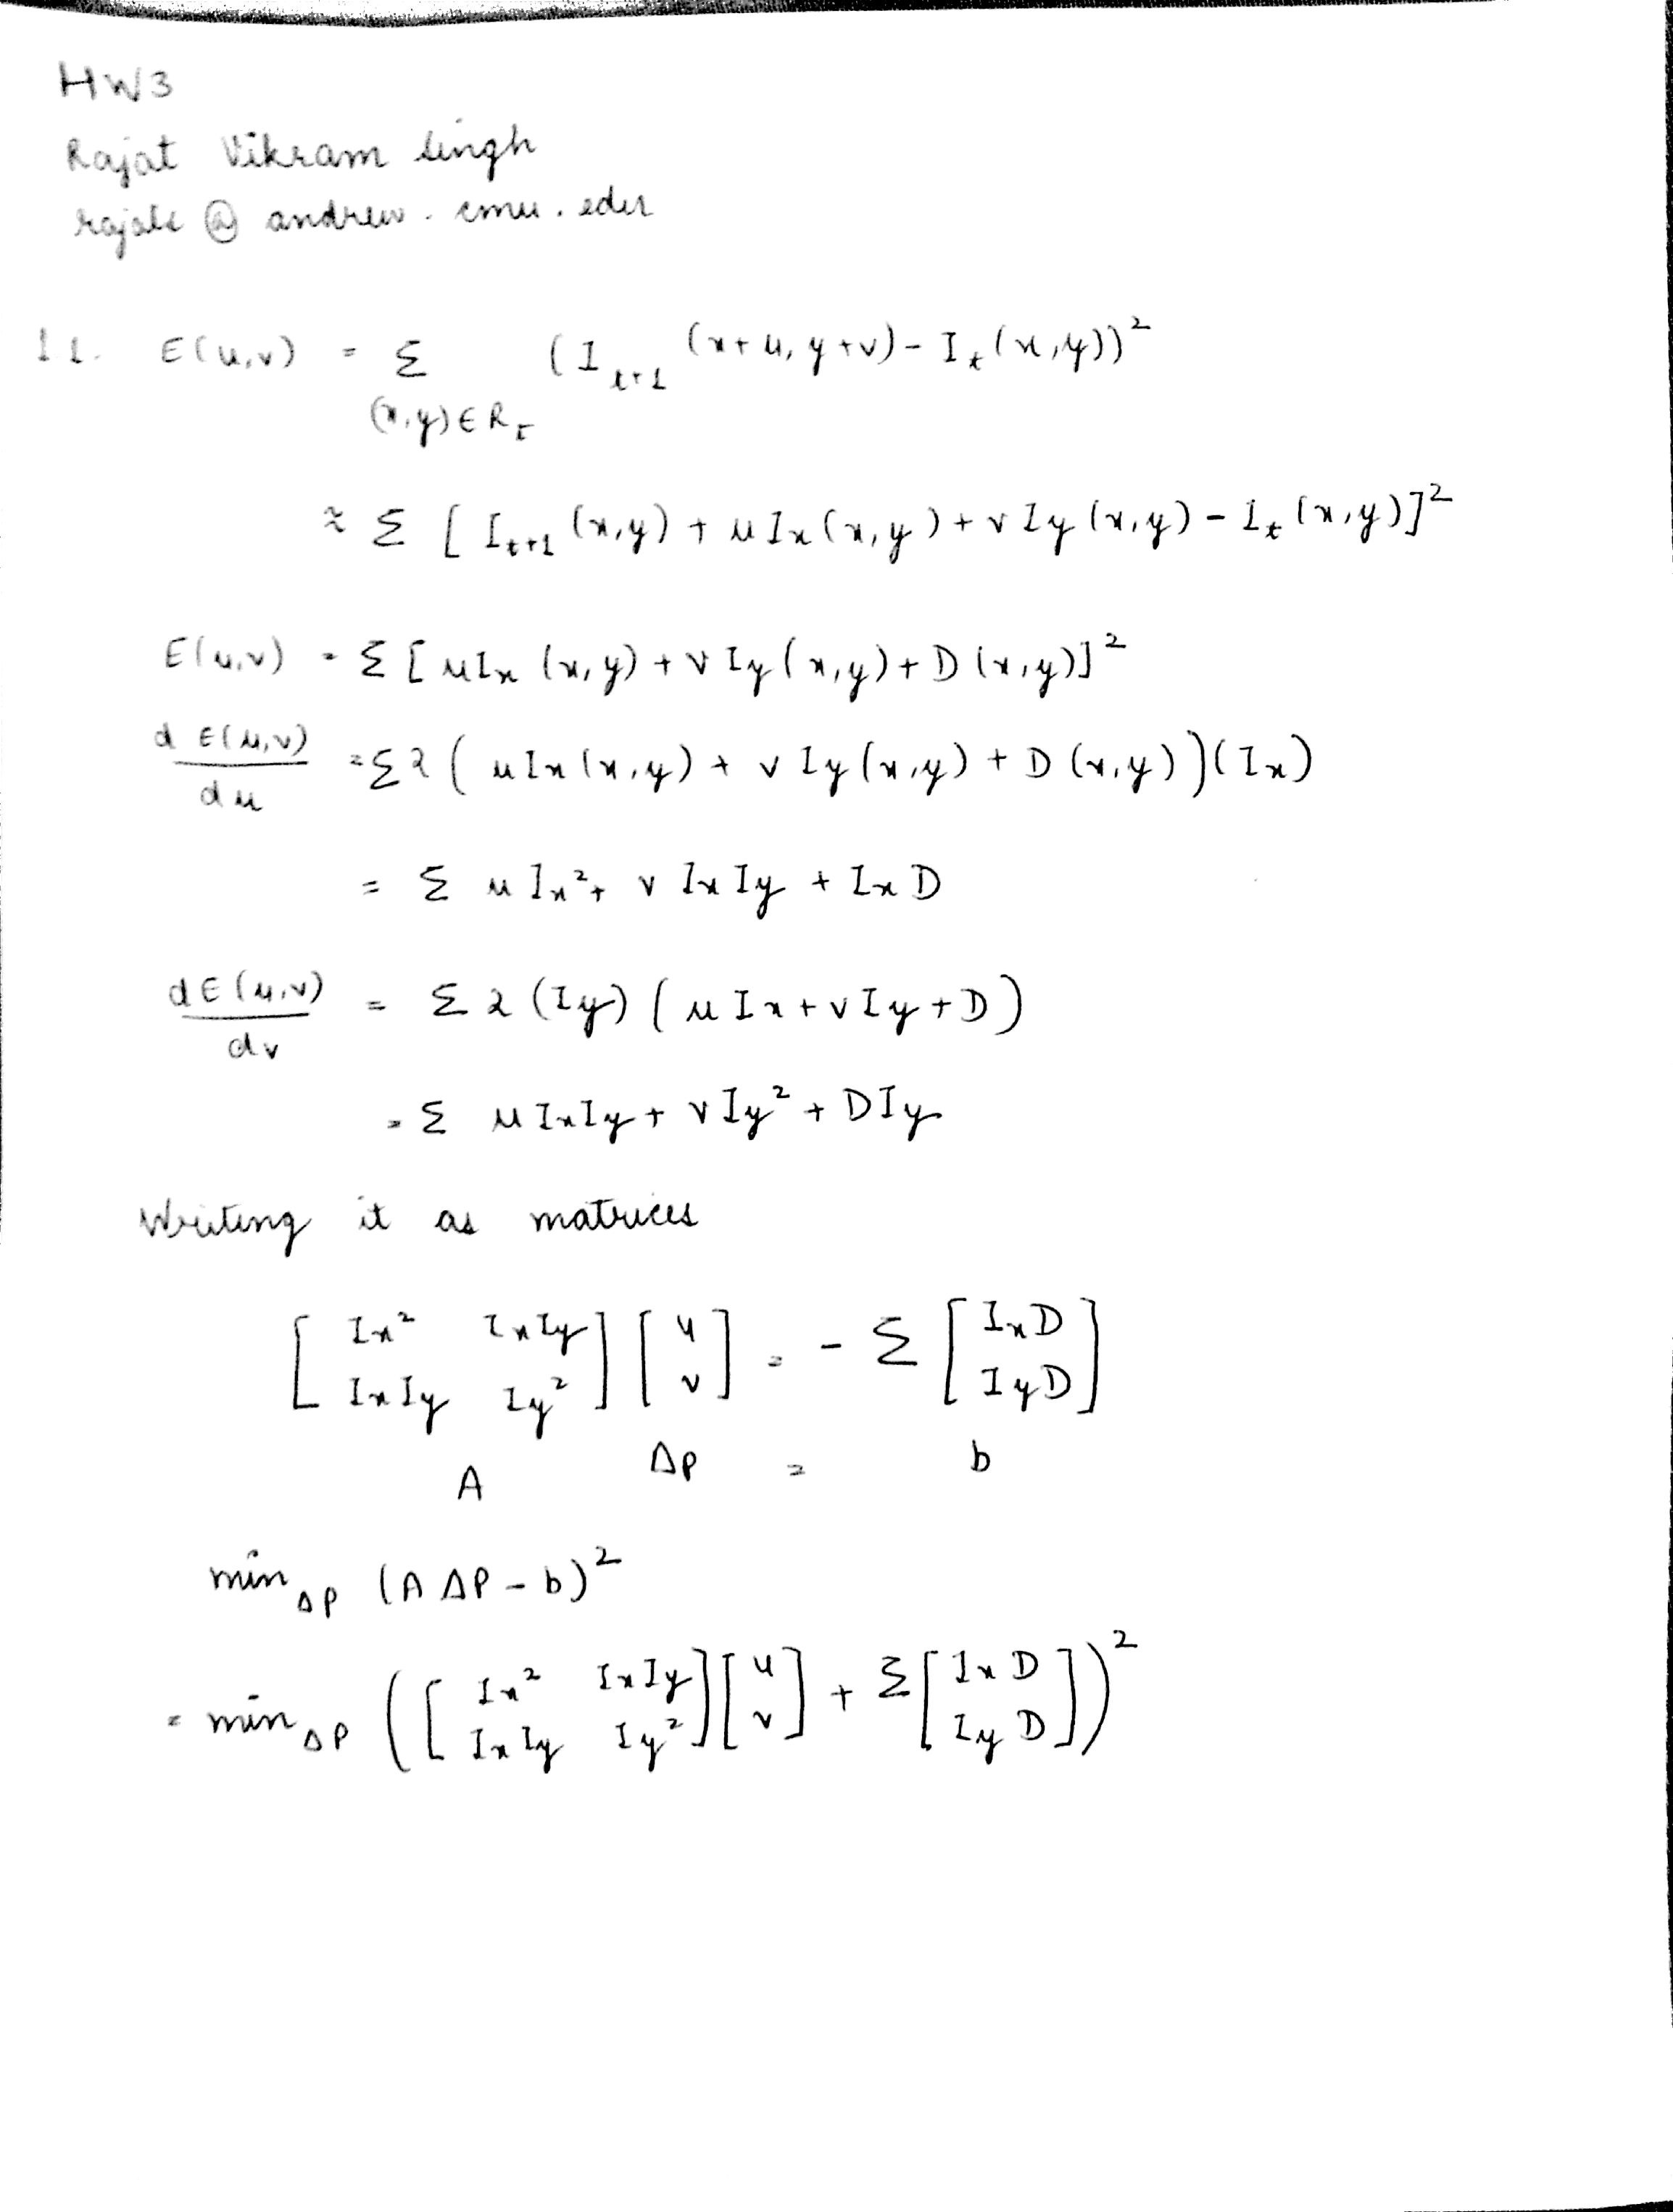 HW3
Rajat Vikram Singh
@ andrew . cmu . edu
1.1. E(u,v) = Σ (I_{t+1} (x+u, y+v) - I_t (x,y))²
(x,y) ∈ R_t
≈ Σ [ I_{t+1} (x,y) + u I_x (x,y) + v I_y (x,y) - I_t (x,y) ]²
E(u,v) = Σ [ u I_x (x,y) + v I_y (x,y) + D (x,y) ]²
d E(u,v) / du = Σ 2 ( u I_x (x,y) + v I_y (x,y) + D (x,y) ) (I_x)
= Σ u I_x² + v I_x I_y + I_x D
d E(u,v) / dv = Σ 2 (I_y) ( u I_x + v I_y + D )
= Σ u I_x I_y + v I_y² + D I_y
Writing it as matrices
[ I_x² I_x I_y ] [ u ] = - Σ [ I_x D ]
[ I_x I_y I_y² ] [ v ] [ I_y D ]
A ΔP = b
min_{ΔP} (A ΔP - b)²
= min_{ΔP} ( [ I_x² I_x I_y ] [ u ] + Σ [ I_x D ] )²
[ I_x I_y I_y² ] [ v ] [ I_y D ]